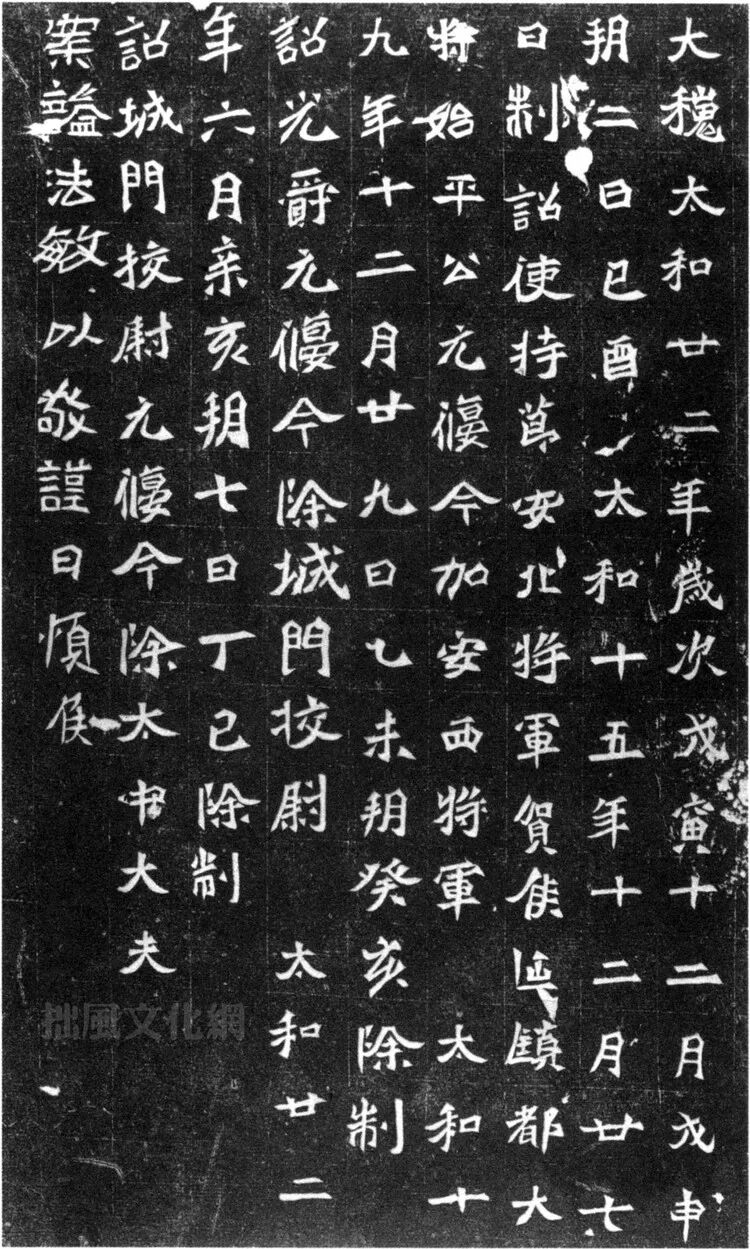 大魏太和廿二年歲次戊寅十二月戊申
朔二日己酉太和十五年十二月廿七
日制詔使持節安北將軍賀侯延鎮都大
將始平公元偃今加安西將軍 太和十
九年十二月廿九日乙未朔癸亥除制
詔光爵元偃今除城門挍尉 太和廿二
年六月辛亥朔七日丁巳除制
詔城門挍尉元偃今除太中大夫
案謚法敏以敬謹曰順侯
拙風文化網